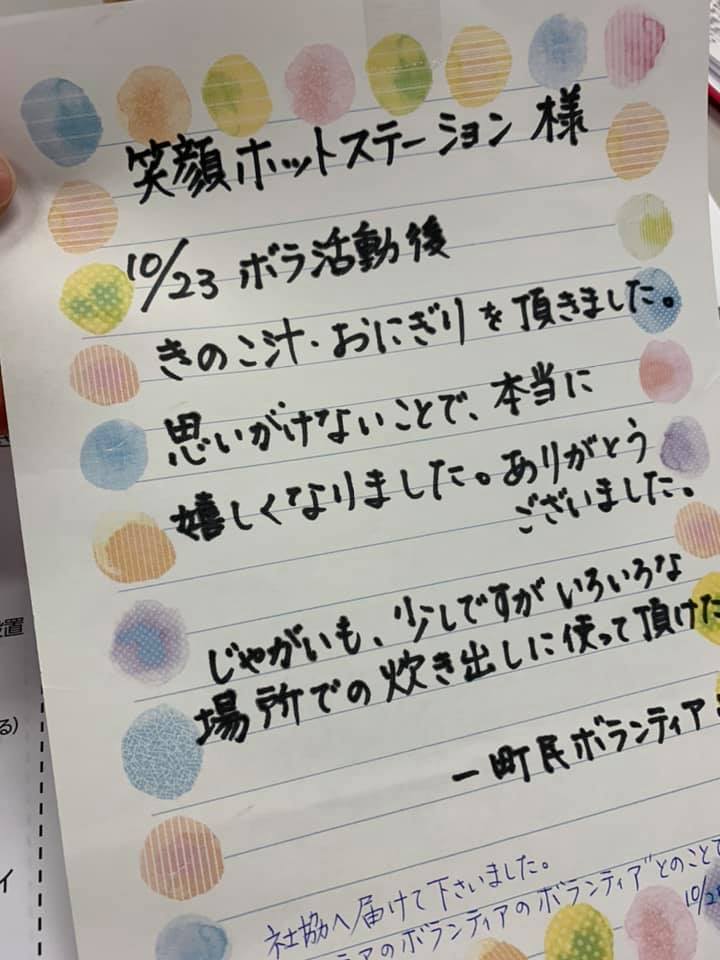 笑顔ホットステーション 様
10/23 ボラ活動後
きのこ汁・おにぎりを頂きました。
思いがけないことで、本当に
嬉しくなりました。ありがとう
ございました。
じゃがいも、少しですがいろいろな
場所での炊き出しに使って頂けた
一町民ボランティア
社協へ届けて下さいました。
アのボランティアのボランティア"とのことで
置
る)
イ